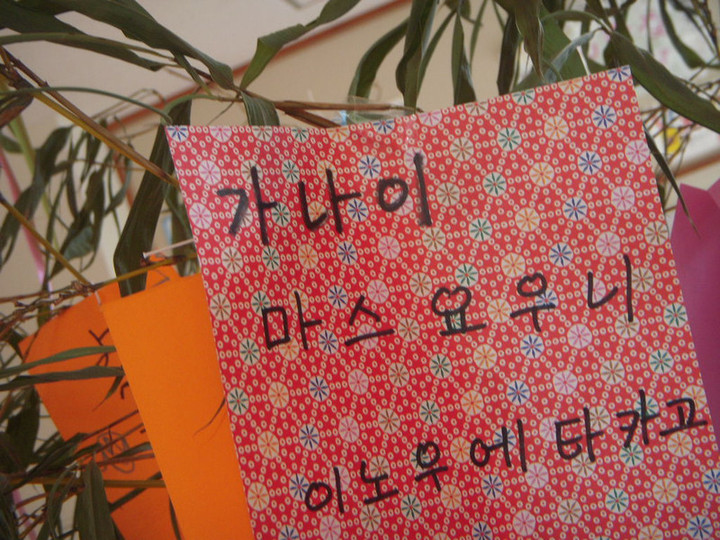 가나이
마스 요우니
이노우에 타카고